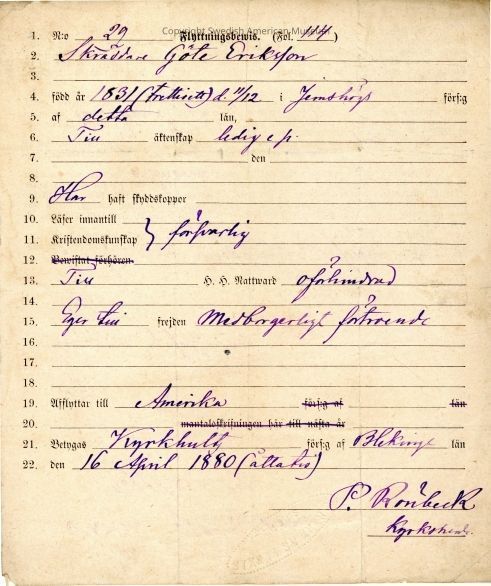 Copyright Swedish American Museum
1. N:o 29 Flyttningsbewis. (Fol. 44)
2. Skräddare Göte Erikson
3.
4. född år 1831 (trettiett) d. 11/12 i Jemshögs förs:g
5. af detta län,
6. Till äktenskap ledig
7. den
8.
9. Har haft skyddskoppor
10. Läser innantill
11. Kristendomskunskap } försvarlig
12. Bewistat förhören
13. Till H. H. Nattward oförhindrad
14.
15. Eger till frejden Medborgerligt förtroende
16.
17.
18.
19. Afflyttar till Amerika förs:g af län
20. mantalsskrifningen här till nästa år
21. Betygas Kyrkhult förs:g af Blekinge län
22. den 16 April 1880 (åttatio)
P. Rönbeck